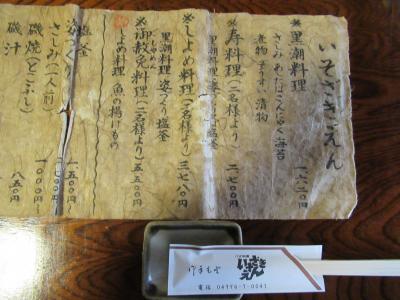 いそざきえん
黒潮料理 一六二〇円
さしみ おひたし こんにゃく 海苔
煮物 ぞうすい 漬物
寿料理(二名様より) 二七〇〇円
黒潮料理 姿づくり 塩釜
※しよめ料理(二名様より) 三七八〇円
黒潮料理 姿つくり 塩釜
※御赦免料理(二名様より) 五五〇〇円
しよめ料理 魚の揚げもの
塩釜 一、五〇〇円
姿つくり 二七〇〇円
さしみ(一人前) 一〇〇〇円
磯焼(とこぶし)
磯汁 八五〇円
いそざきえん
電話 04996-7-0041